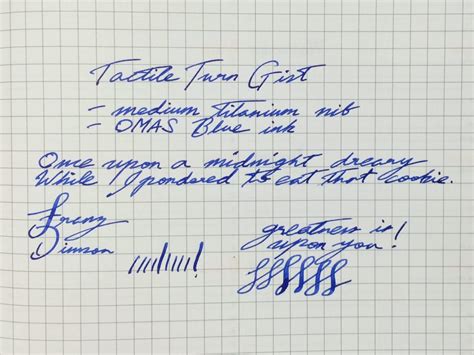 Tactile Turn Gist
- medium titanium nib
- OMAS Blue ink
Once upon a midnight dreary
While I pondered to eat that cookie.
greatness is
upon you!